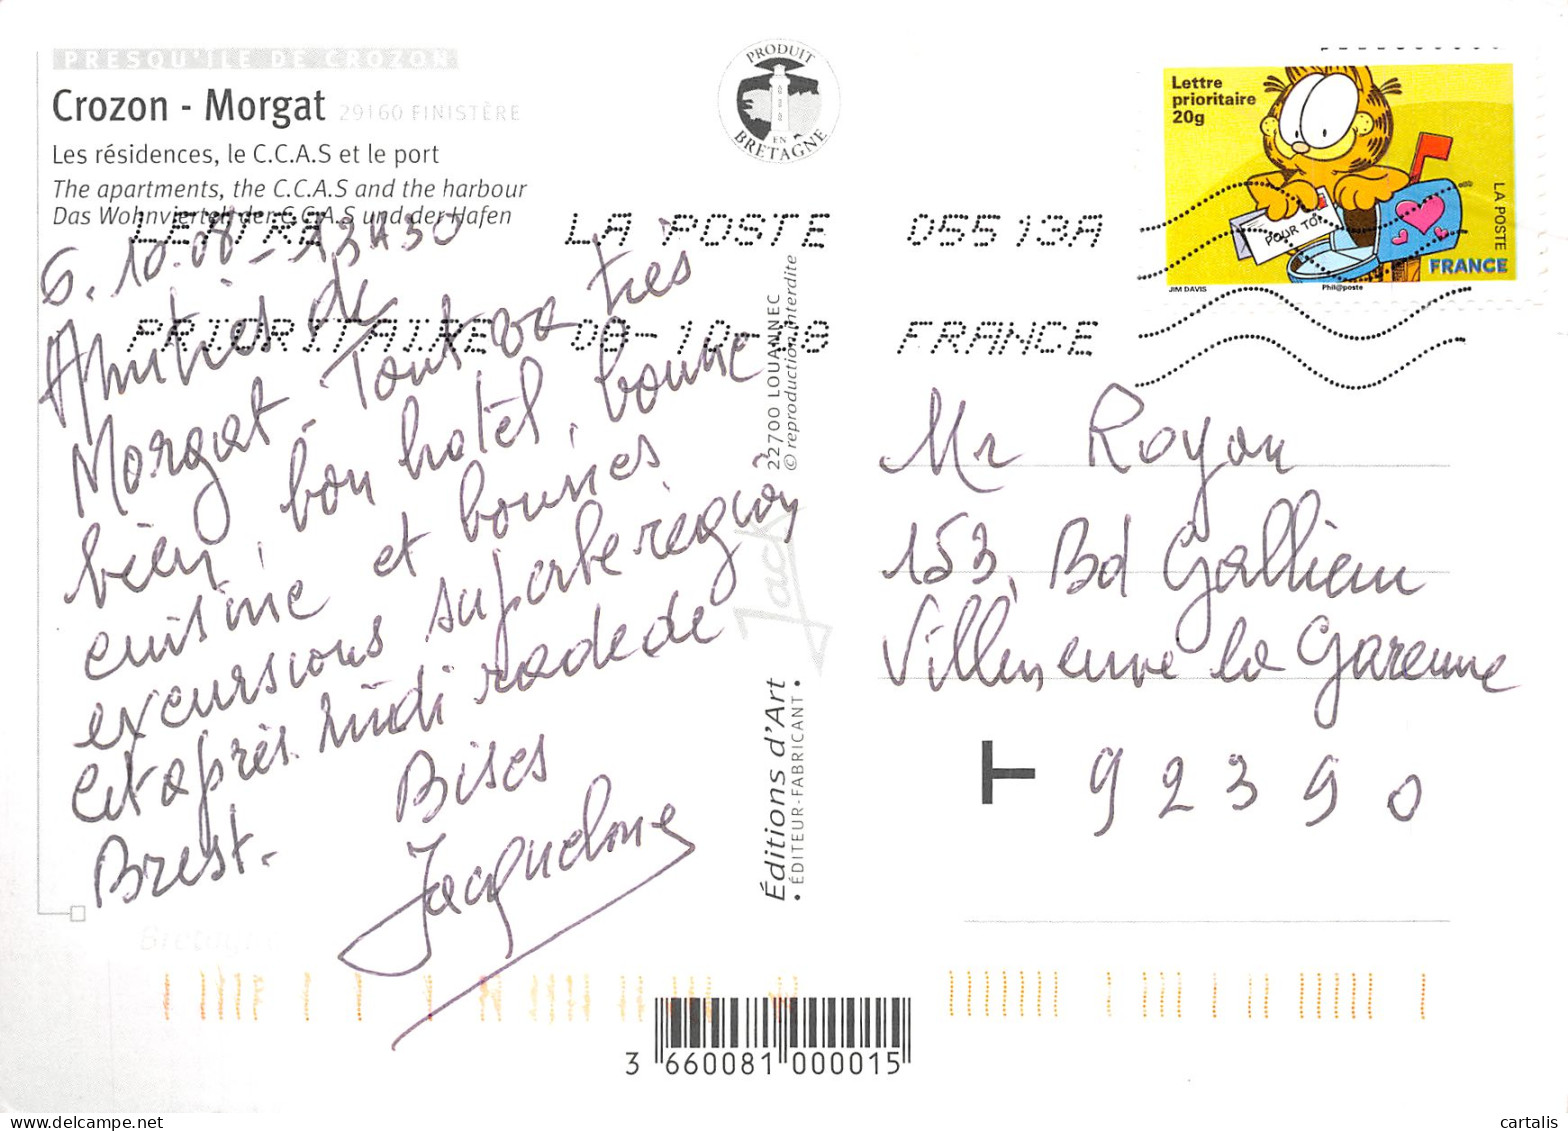 PRESQU'ILE DE CROZON
Crozon - Morgat 29160 FINISTÈRE
Les résidences, le C.C.A.S et le port
The apartments, the C.C.A.S and the harbour
Das Wohnviertel, der C.C.A.S und der Hafen
PRODUIT
EN
BRETAGNE
Lettre
prioritaire
20g
POUR TOI
LA POSTE
FRANCE
JIM DAVIS
Phil@poste
LETTRE LA POSTE 05513A
PRIORITAIRE 08-10-08 FRANCE
6.10.08 - 13H30
Amitiés de
Morgat. Tout va très
bien, bon hotel, bonne
cuisine et bonnes
excursions superbe région
Cet après. midi rade de
Brest.
Bises
Jacqueline
22700 LOUANNEC
© reproduction interdite
Jack
Éditions d'Art
• ÉDITEUR-FABRICANT •
Mr Royan
153, Bd Gallieni
Villeneuve la Garenne
T 92390
3 660081 000015
cartalis